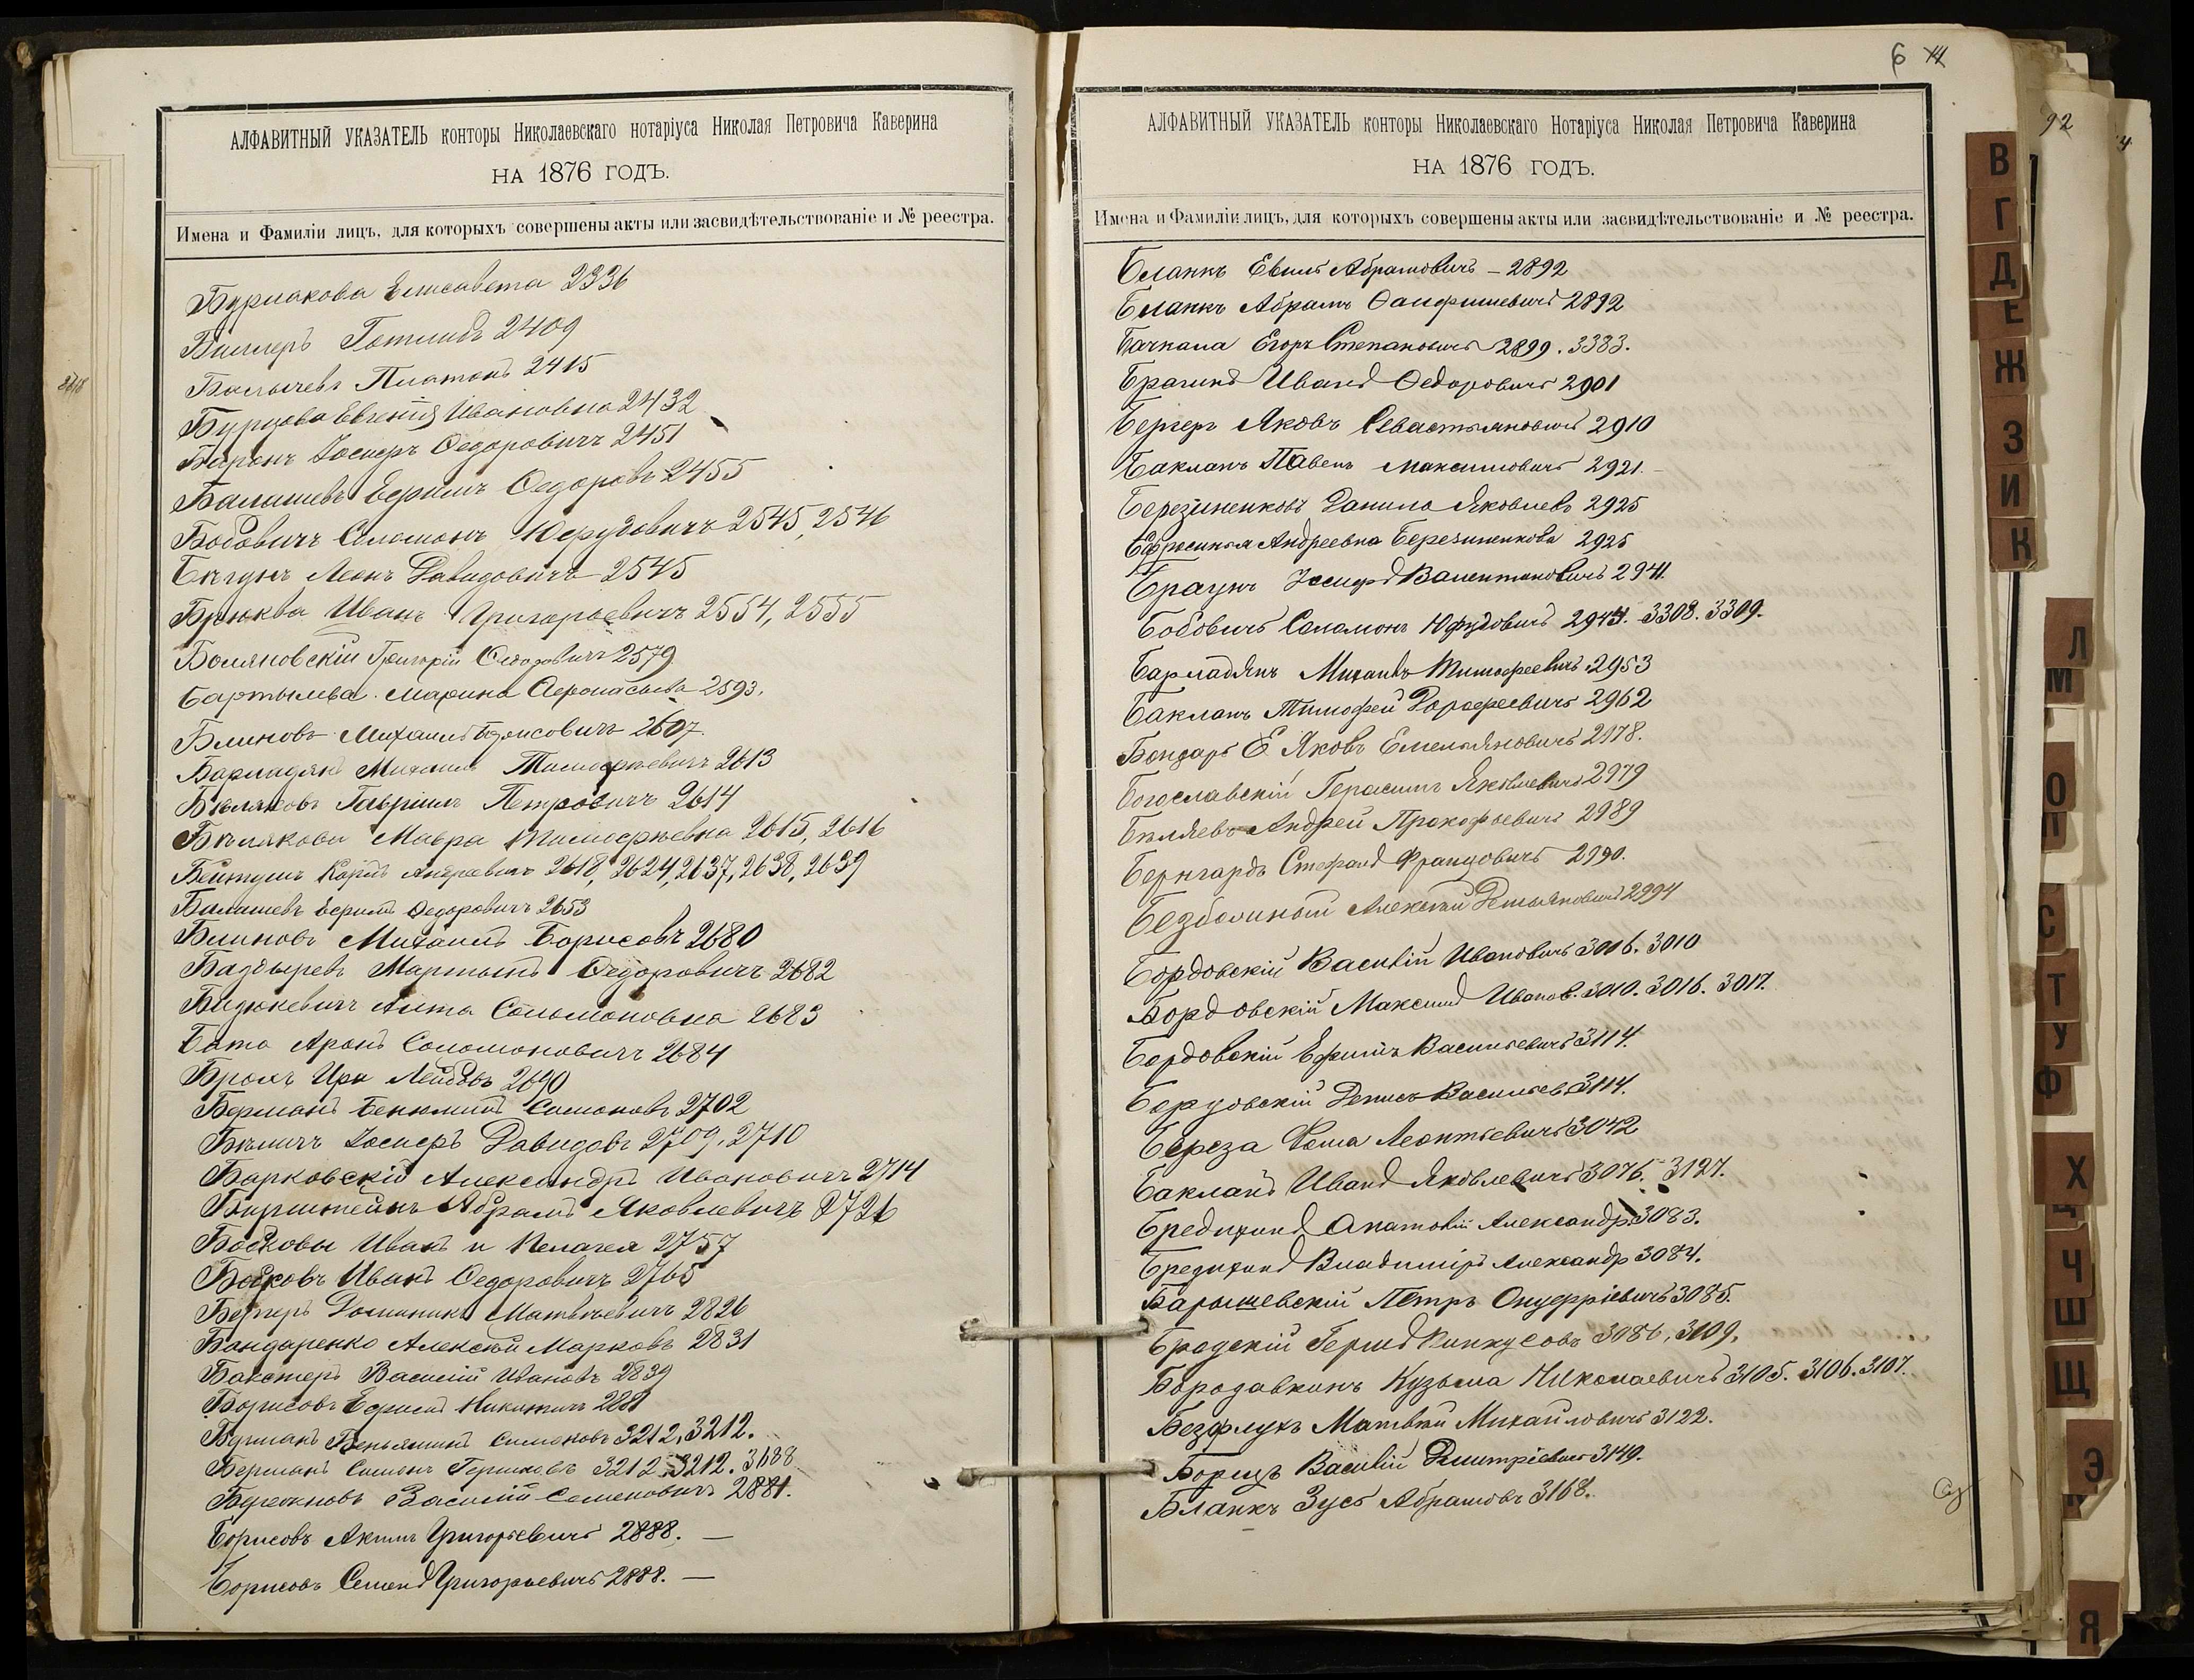 АЛФАВИТНЫЙ УКАЗАТЕЛЬ конторы Николаевскаго нотаріуса Николая Петровича Каверина
НА 1876 ГОДЪ.
Имена и Фамиліи лицъ, для которыхъ совершены акты или засвидѣтельствованіе и № реестра.
Бурлакова Елисавета 2336
Биллеръ Готлибъ 2409
Балычевъ Платонъ 2415
Бурцова Евгенія Ивановна 2432
Баронъ Іосифъ Федоровичъ 2451
Балашевъ Ефимъ Федоровъ 2455
Бобовичъ Соломонъ Юфудовичъ 2545, 2546
Леонъ Давидовичъ 2545
Брюква Иванъ Григорьевичъ 2554, 2555
Боляновскій Григорій 2579
Марина Афонасьева 2593.
Блиновъ Михаилъ Борисовичъ 2607.
Барладянъ Михаилъ Тимофѣевичъ 2613
Бѣляковъ Гавріилъ Петровичъ 2614
Бѣлякова Мавра Тимофѣевна 2615, 2616
Карлъ Андреевичъ 2618, 2624, 2637, 2638, 2639
Балашевъ Ефимъ Федоровичъ 2653
Блиновъ Михаилъ Борисовъ 2680
Баздыревъ Мартынъ Федоровичъ 2682
Соломоновна 2683
Аронъ Соломоновичъ 2684
2690
Берманъ Бенюминъ Симоновъ 2702
Іосифъ Давидовъ 2709, 2710
Барковскій Александръ Ивановичъ 2714
Абрамъ Яковлевичъ 2726
Бойковы Иванъ и Пелагея 2757
Бойковъ Иванъ Федоровичъ 2765
Бергеръ Доминикъ Матвѣевичъ 2826
Бандаренко Алексѣй Марковъ 2831
Бакстеръ Василій Ивановъ 2839
Борисовъ Ефимъ Никитичъ
Берманъ Беньяминъ Симоновъ 3212, 3212.
Берманъ Симонъ Гершковъ 3212. 3212. 3688
Василій Семеновичъ 2881.
Борисовъ Акимъ Григорьевичъ 2888. —
Борисовъ Семенъ Григорьевичъ 2888. —
6
АЛФАВИТНЫЙ УКАЗАТЕЛЬ конторы Николаевскаго Нотаріуса Николая Петровича Каверина
НА 1876 ГОДЪ.
Имена и Фамиліи лицъ, для которыхъ совершены акты или засвидѣтельствованіе и № реестра.
Бланкъ Абрамовичъ – 2892
Бланкъ Абрамъ 2892
Бачкала Егоръ Степановичъ 2899. 3383.
Брагинъ Иванъ Федоровичъ 2901
Бергеръ Яковъ Севастьяновичъ 2910
Бакланъ Павелъ Максимовичъ 2921.
Березиненковъ Данило Яковлевъ 2925
Ефросинья Андреевна Березиненкова 2925
Браунъ Іосифъ Валентиновичъ 2941.
Бобовичъ Саламонъ Юфудовичъ 3308. 3309.
Барладянъ Михаилъ Тимофеевичъ 2953
Бакланъ Тимофей Дорофеевичъ 2962
Бондарь Е. Яковъ Емельяновичъ 2978.
Богославскій Герасимъ Яковлевичъ 2979
Бѣляевъ Андрей Прокофьевичъ 2989
Бернгардъ Стефанъ Францовичъ 2990.
Алексѣй Демьяновичъ 2994
Бордовскій Василій Ивановичъ 3016. 3010
Бордовскій Максимъ Иванов. 3010. 3016. 3017.
Бордовскій Ефимъ Васильевичъ 3114.
Бордовскій Денисъ Васильев. 3114.
Береза Фома Леонтьевичъ 3042
Бакланъ Иванъ Яковлевичъ 3076. 3127.
Бредихинъ Анатолій Александр. 3083.
Бредихинъ Владиміръ Александр 3084.
Барышевскій Петръ Онуфріевичъ 3085.
Бродскій Гершъ Пинкусовъ 3086, 3109.
Бородавкинъ Кузьма Николаевичъ 3105. 3106. 3107.
Безфлукъ Матвѣй Михайловичъ 3122.
Борщъ Василій Дмитріевичъ 3149.
Бланкъ Зусъ Абрамовъ 3168.
92
В
Г
Д
Е
Ж
З
И
К
Л
М
О
П
С
Т
У
Ф
Х
Ц
Ч
Ш
Щ
Э
Я